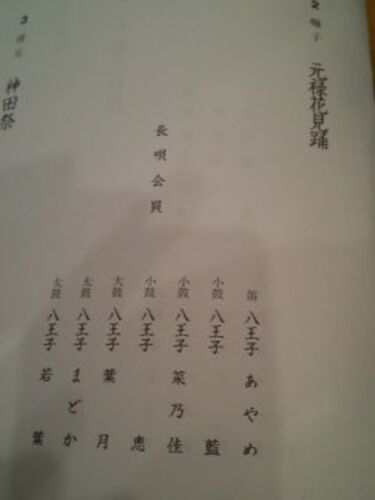 2 囃子 元禄花見踊
長唄会員
笛 八王子 あやめ
小鼓 八王子 藍
小鼓 八王子 菜乃佳
小鼓 八王子 恵
大鼓 八王子 葉月
太鼓 八王子 まどか
太鼓 八王子 若葉
3 神田祭